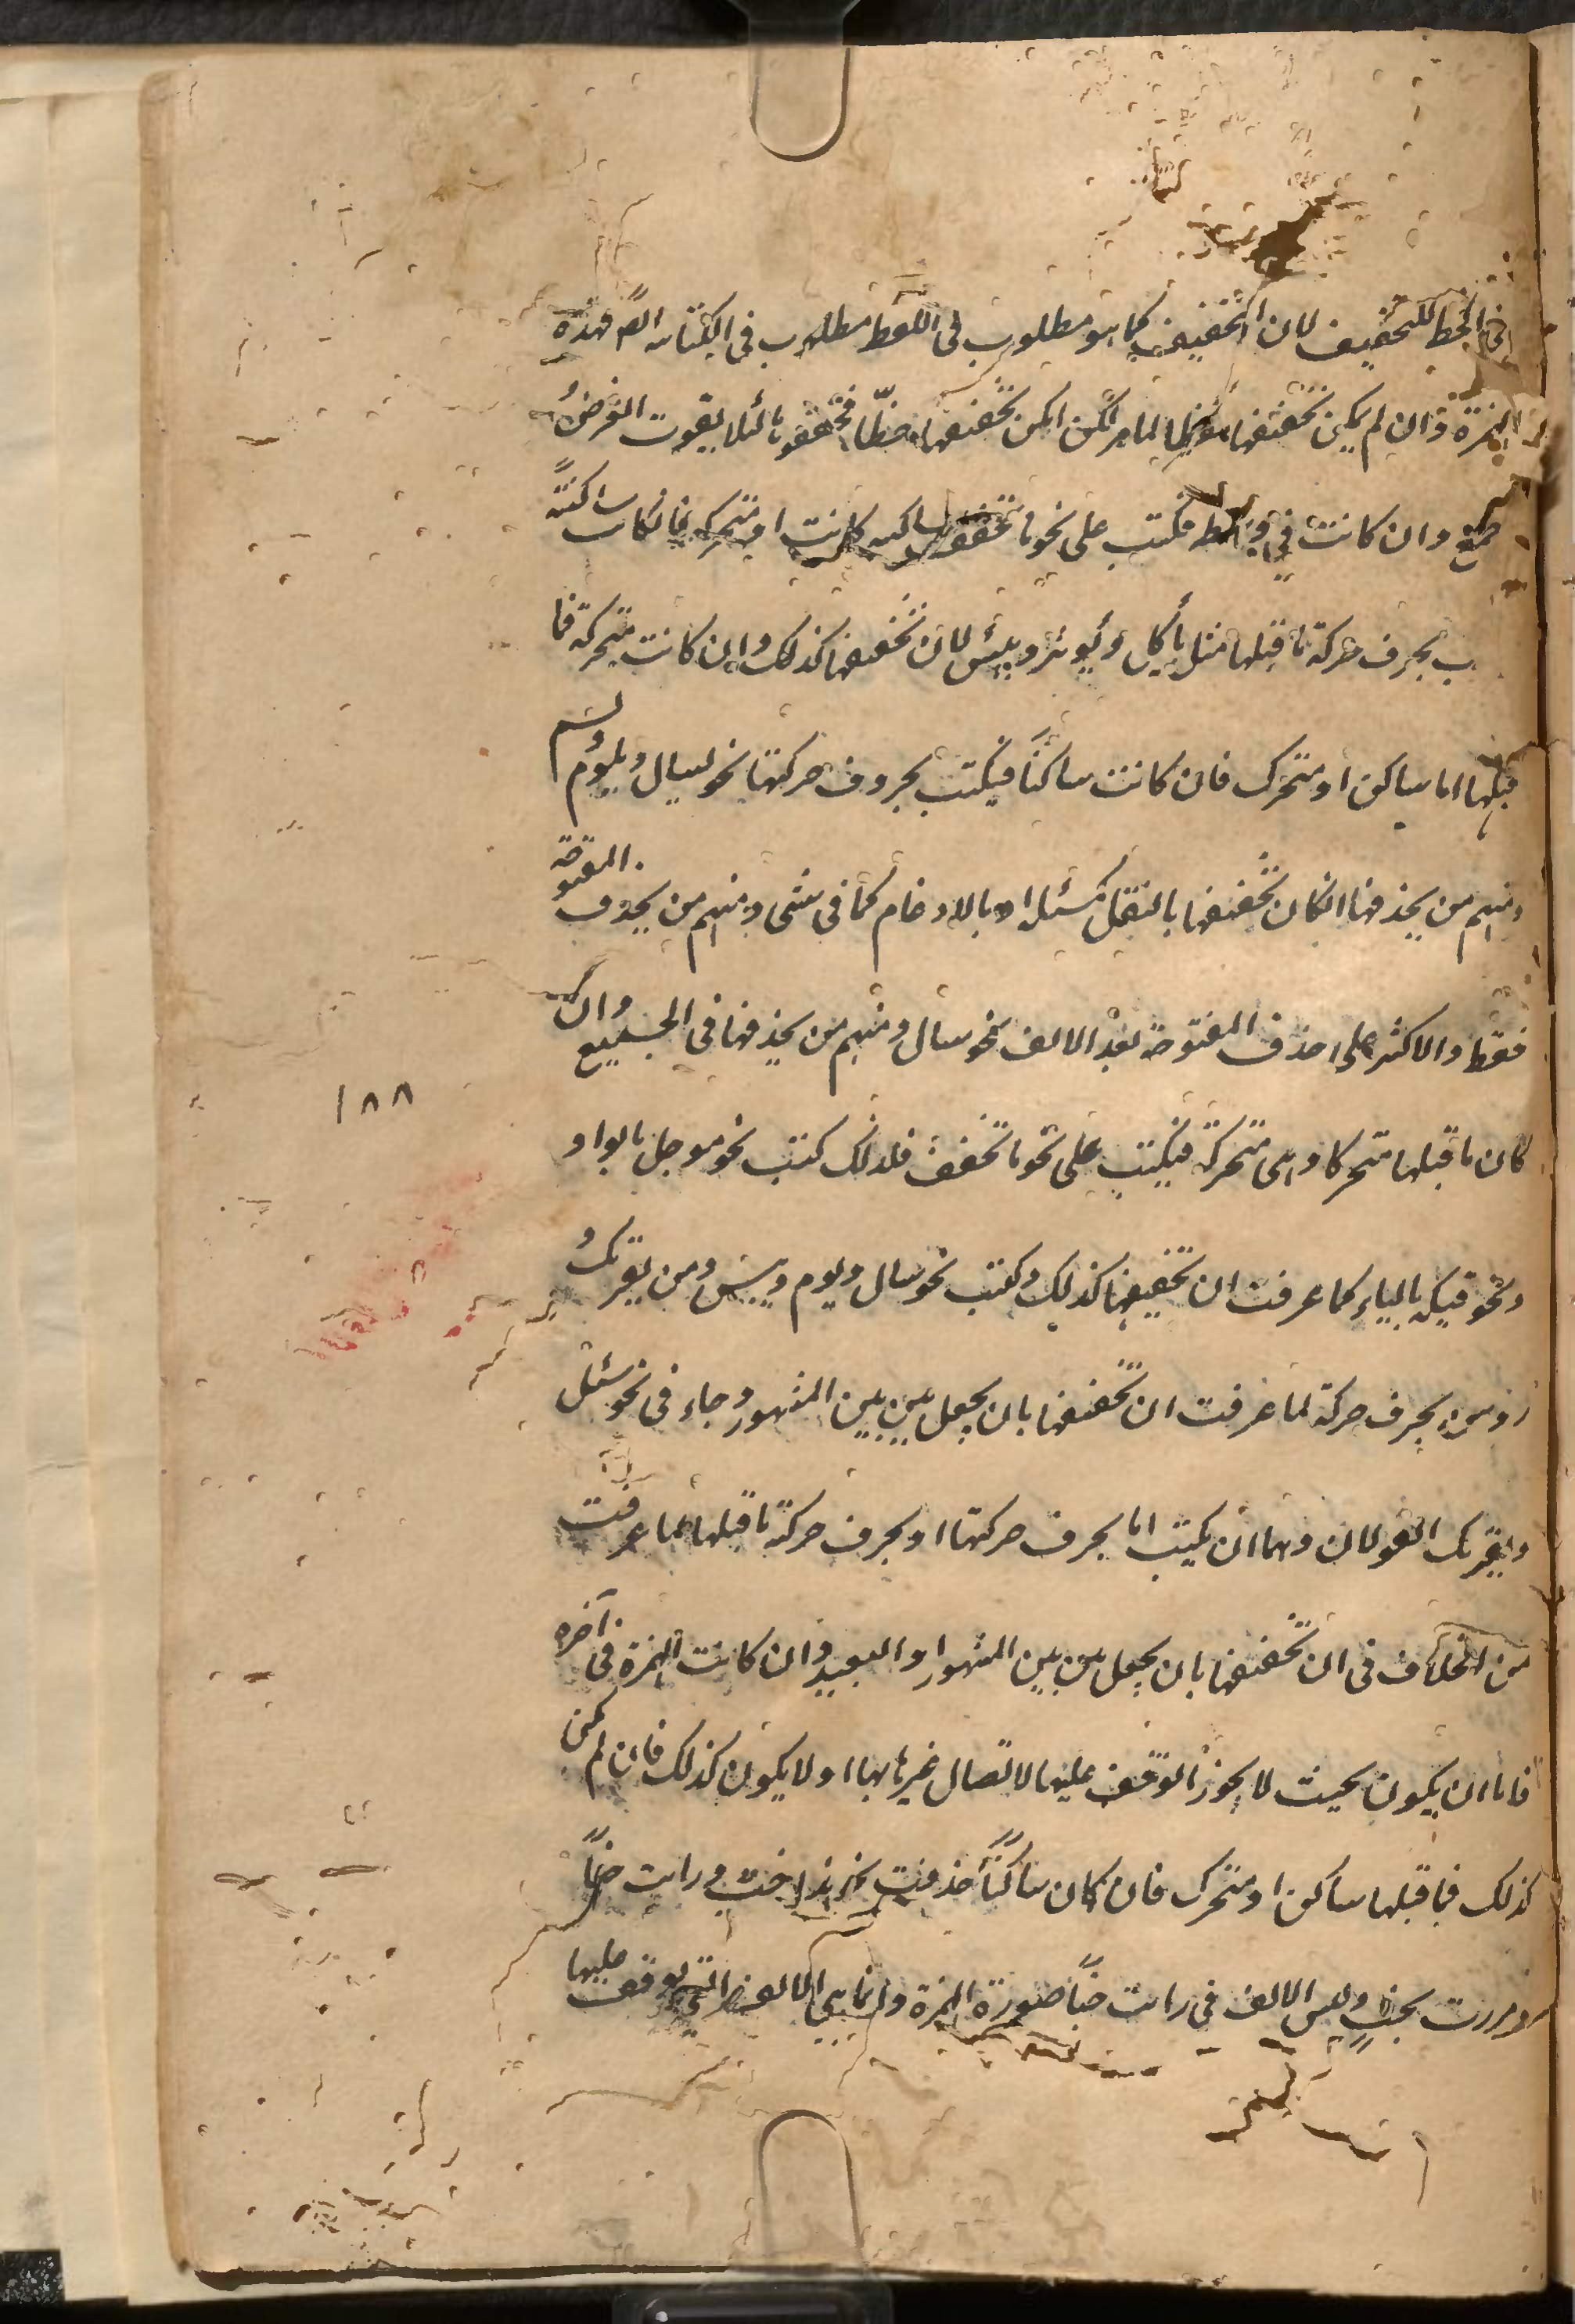 في الخط للتخفيف لان التخفيف كما هو مطلوب في اللفظ مطلوب في الكتابة ايضً فهذه
الهمزة وان لم يكن تخفيفها لما مر لكن امكن تخفيفها خطّا فخففوها لئلا يفوت الغرض
وان كانت في وسطه فكتب على نحو ما تخفف ساكنه كانت او متحركه فانكانت ساكنةً
بحرف حركة ما قبلها مثل يأكل ويؤثر وبيئس لان تخفيفها كذلك وان كانت متحركه فما
قبلها اما ساكن او متحرك فان كانت ساكنًا فيكتب بحروف حركتها نحو يسال ويلوم ويسئم
ومنهم من يحذفها انكان تخفيفها بالنقل كمسئلة او بالادغام كما في شى ومنهم من يحذف المفتوحة
فقط والاكثر على حذف المفتوحة بعد الالف نحو سال ومنهم من يحذفها في الجميع وان
كان ما قبلها متحركا وهى متحركة فيكتب على نحو ما تخفف فلذلك كتب نحو موجل بالواو
١٨٨
ونحو فيئه بالياء كما عرفت ان تخفيفها كذلك وكتب نحو سال ولوم ويئس ومن يقرئك و
رؤوس بحرف حركة لما عرفت ان تخفيفها بان يجعل بين بين المشهور وجاء في نحو سئل
ويقرئك القولان وهما ان يكتب اما بحرف حركتها او بحرف حركة ما قبلها لما عرفت
من الخلاف في ان تخفيفها بان يجعل بين بين المشهور او البعيد وان كانت الهمزة في آخره
فاما ان يكون بحيث لا يجوز الوقف عليها لاتصال غيرها بها او لا يكون كذلك فان لم يكن
كذلك فما قبلها ساكن او متحرك فان كان ساكنًا حذفت نحو هذا خبٌ ورايت خبًا
ومررت بخبٍ وليس الالف في رايت خبًا صورة الهمزة وانما هي الالف التي يوقف عليها